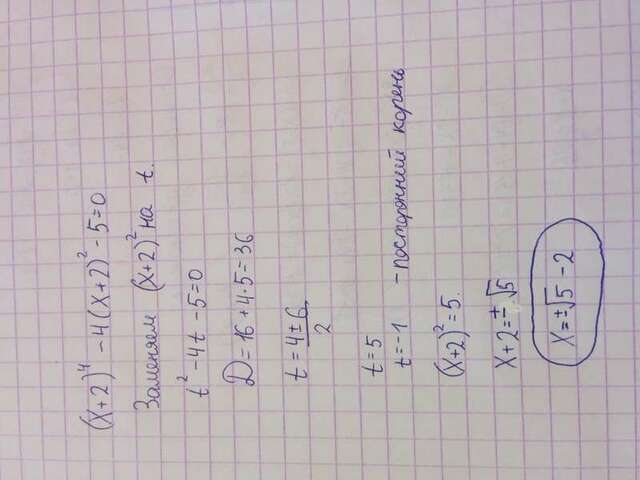 (x+2)⁴ - 4(x+2)² - 5 = 0
Заменяем (x+2)² на t.
t² - 4t - 5 = 0
D = 16 + 4·5 = 36
t = (4 ± 6)/2
t = 5
t = -1 - посторонний корень
(x+2)² = 5.
x + 2 = ±√5
x = ±√5 - 2